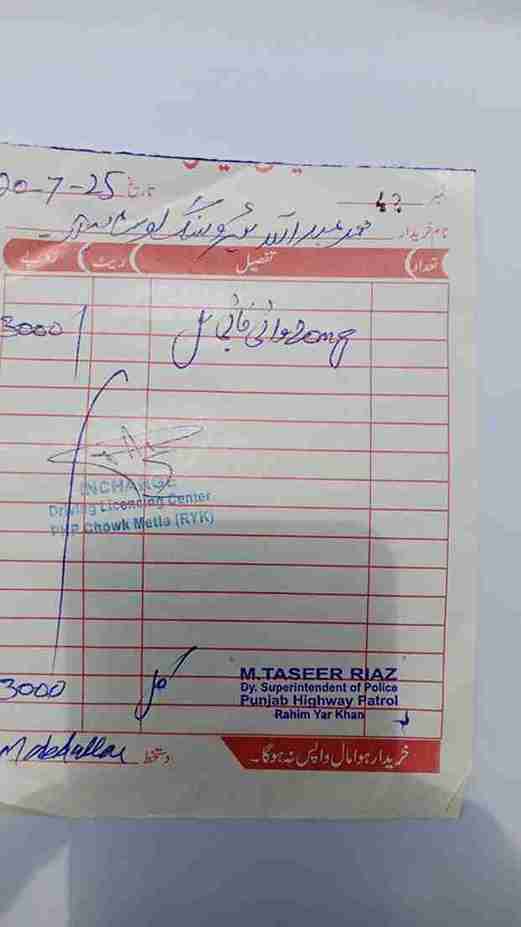 20-7-25 تاریخ 42 نمبر
نام خریدار محمد عبداللہ
تعداد تفصیل ریٹ روپے
وائی فائی بل 20mg 3000/
INCHARGE
Driving Licensing Center
PHP Chowk Metla (RYK)
M.TASEER RIAZ
Dy. Superintendent of Police
Punjab Highway Patrol
Rahim Yar Khan
3000
M abdullah دستخط
خریدا ہوا مال واپس نہ ہوگا۔